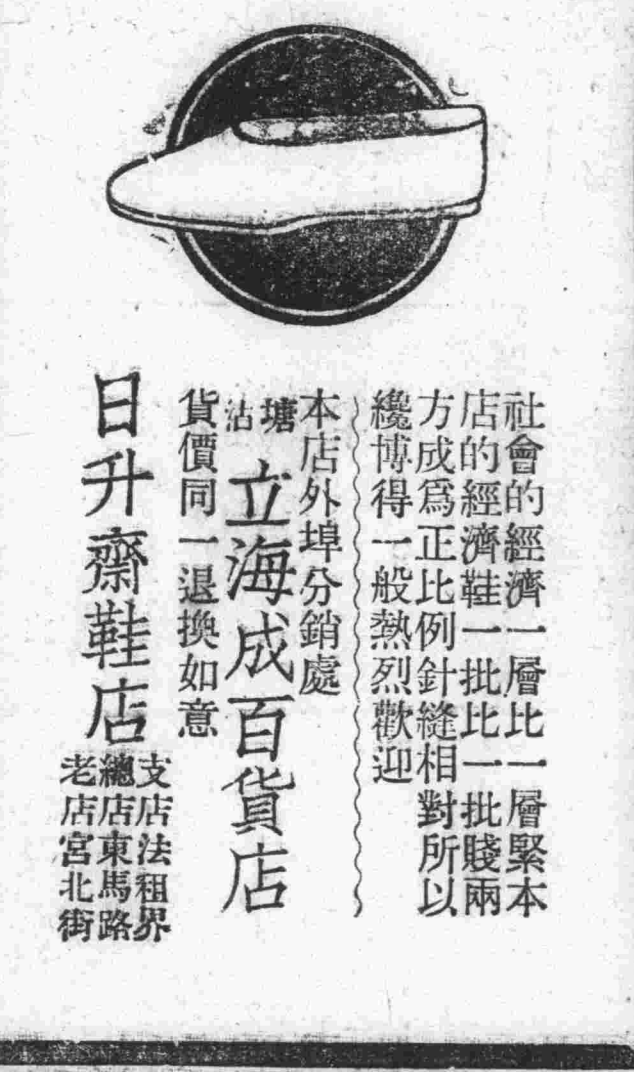 社會的經濟一層比一層緊本
店的經濟鞋一批比一批賤兩
方成爲正比例針縫相對所以
纔博得一般熱烈歡迎
本店外埠分銷處
塘沽立海成百貨店
貨價同一退換如意
日升齋鞋店
支店法租界
總店東馬路
老店宮北街